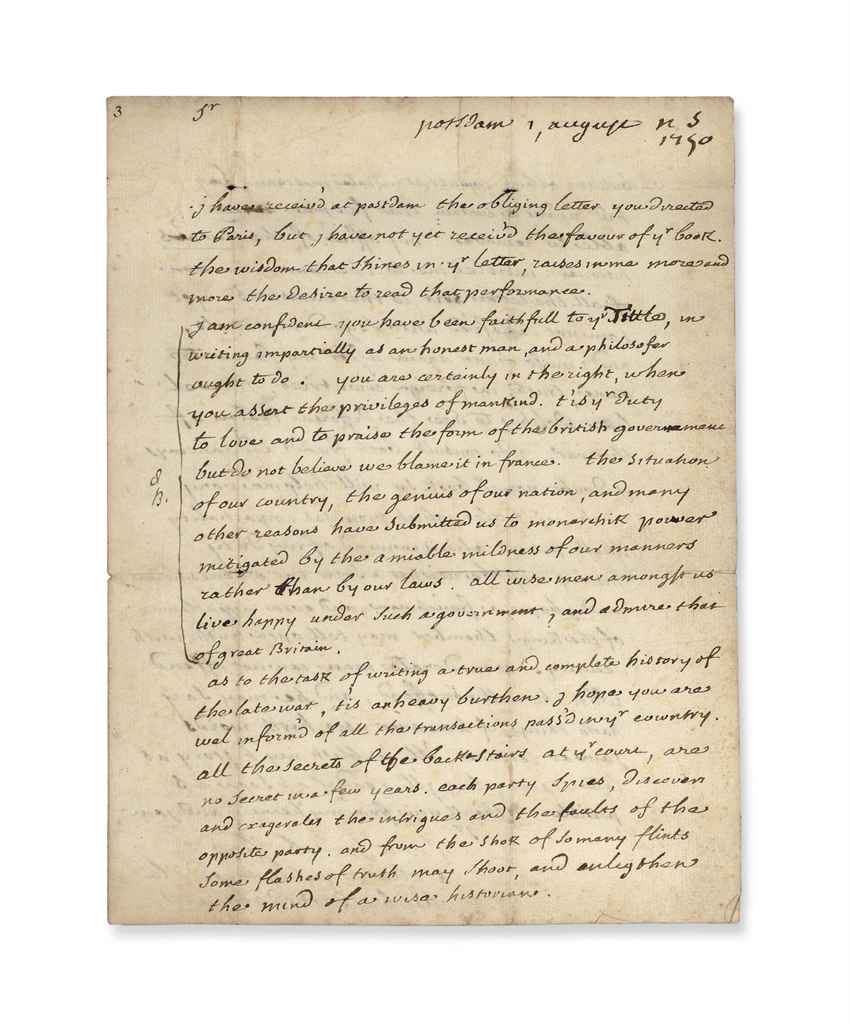 3
Sr
postdam 1, august n S
1750
j have receiv'd at postdam the obliging letter you directed
to Paris, but j have not yet receiv'd the favour of yr book.
the wisdom that shines in yr letter, raises in me more and
more the desire to read that performance.
j am confident you have been faithfull to yr Tittle, in
writing impartially as an honest man, and a philosofer
ought to do. you are certainly in the right, when
you assert the privileges of mankind. t'is yr duty
to love and to praise the form of the british governement
but do not believe we blame it in france. the situation
of our country, the genius of our nation, and many
other reasons have submitted us to monarchik power
mitigated by the amiable mildness of our manners
rather than by our laws. all wise men amongst us
live happy under such a government, and admire that
of great Britain.
as to the task of writing a true and complete history of
the late war, t'is an heavy burthen. j hope you are
wel inform'd of all the transactions pass'd in yr country.
all the secrets of the back stairs at yr court, are
no secret in a few years. each party spies, discovers
and exagerates the intrigues and the faults of the
opposite party. and from the shok of so many flints
some flashes of truth may shoot, and enligthen
the mind of a wise historian.